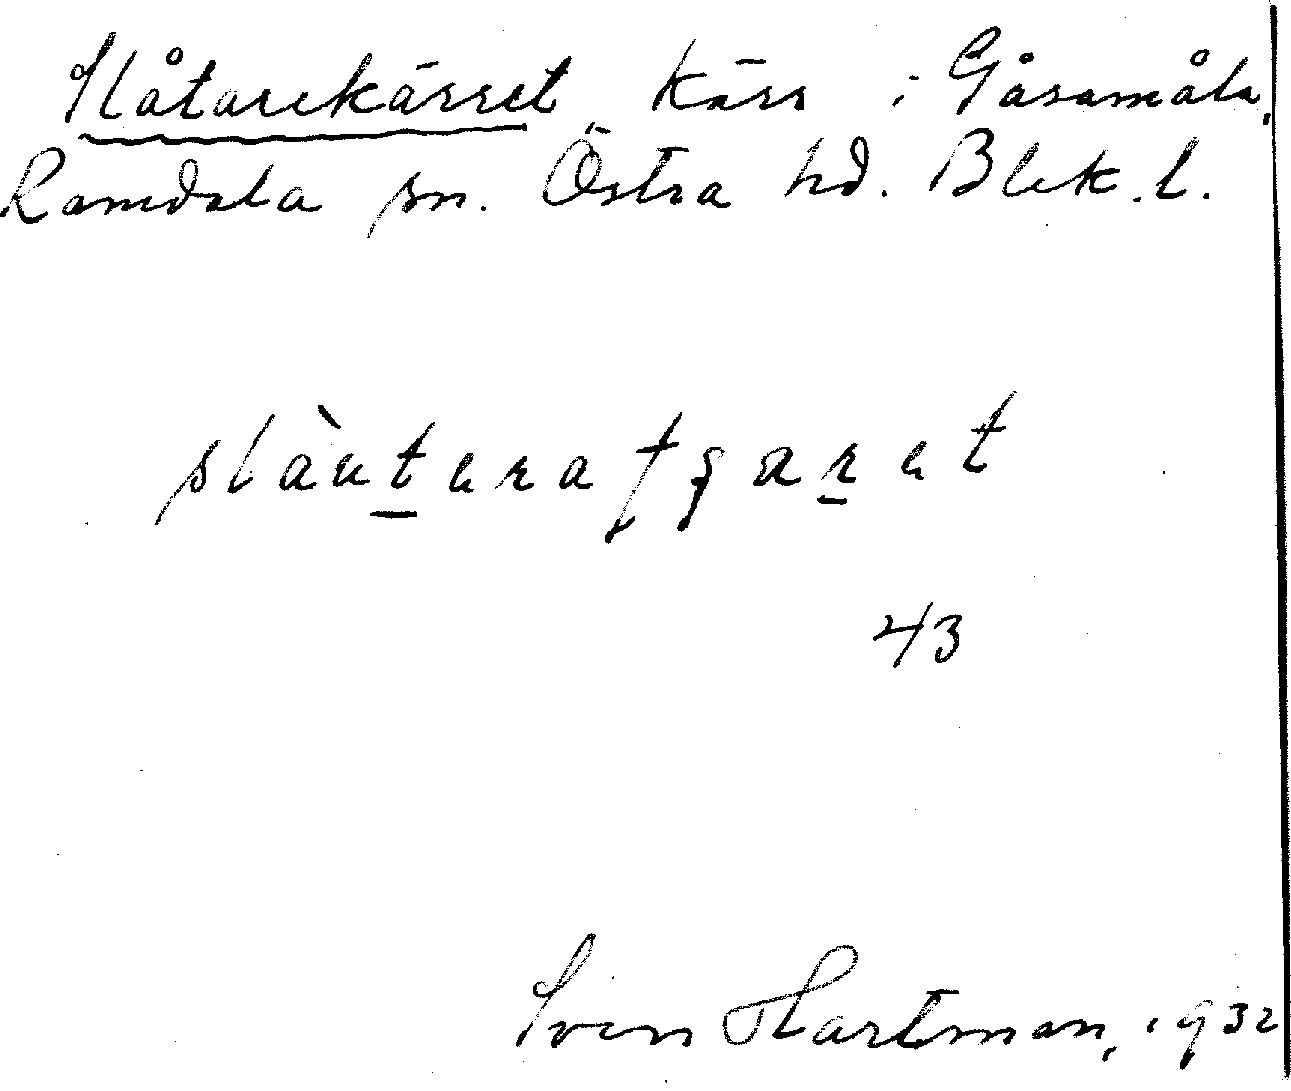 Slåtarekärret, kärr i Gåsamåla,
Ramdala sn. Östra hd. Blek. l.
43
Sven Hartman, 1932